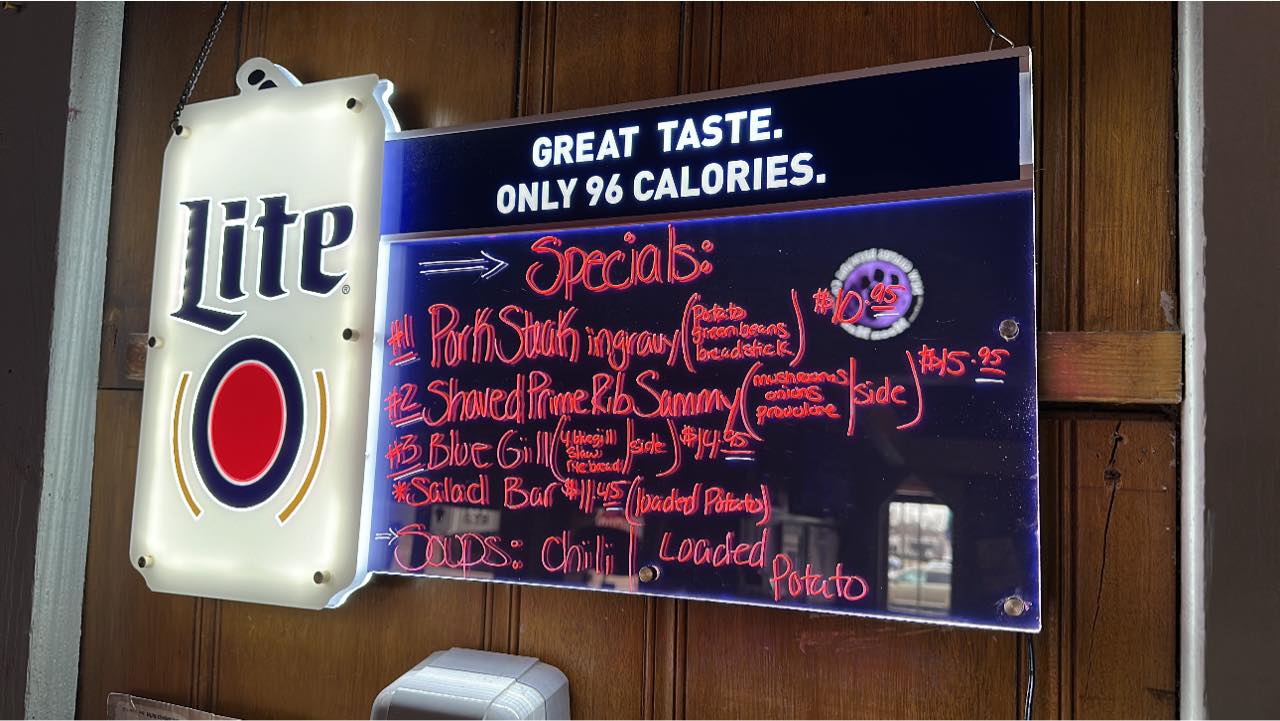 Lite
GREAT TASTE.
ONLY 96 CALORIES.
Specials:
#1 Pork Steak in gravy (Potato green beans breadstick) $10.95
#2 Shaved Prime Rib Sammy (mushrooms onions provolone | side) $15.95
#3 Blue Gill (4 bluegill slaw rye bread | side) $14.95
*Salad Bar $11.45 (loaded Potato)
Soups: Chili | Loaded Potato